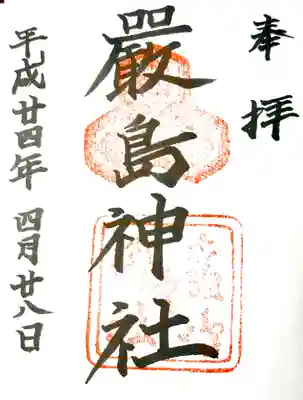 奉拝
嚴島神社
平成廿四年 四月廿八日